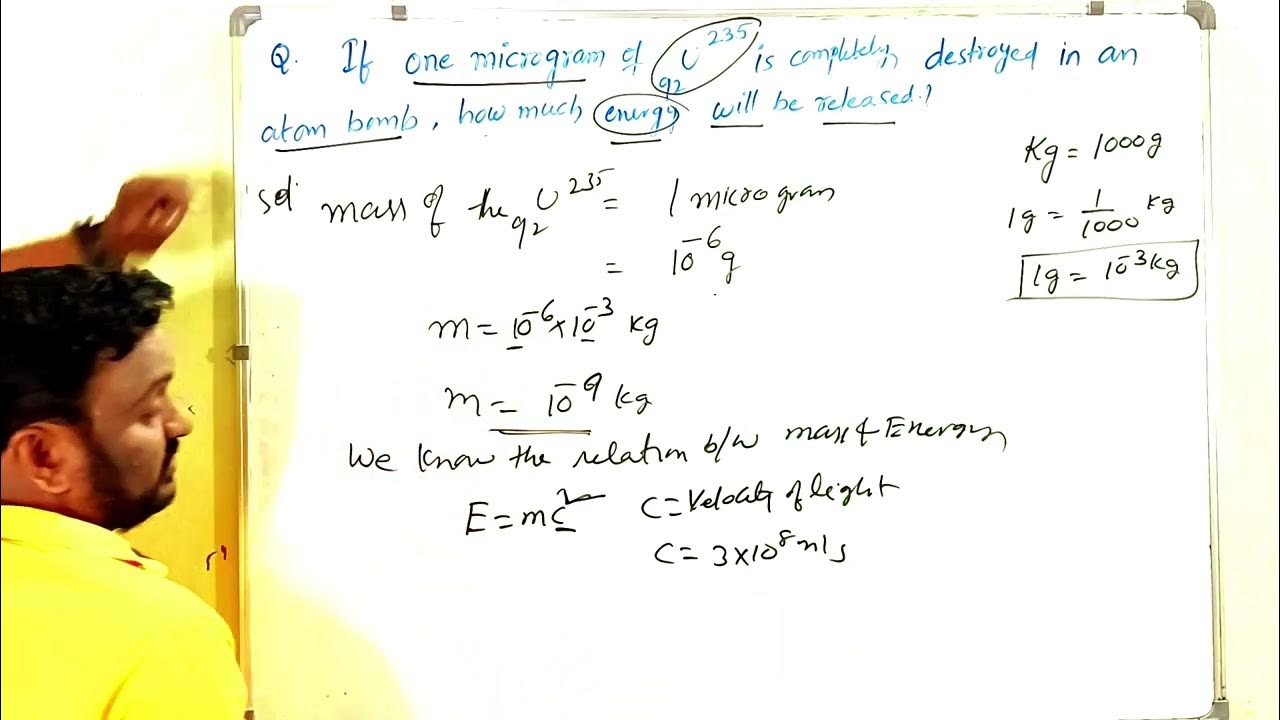 Q. If one microgram of ₉₂U²³⁵ is completely destroyed in an
atom bomb, how much energy will be released?
Kg = 1000g
1g = 1/1000 kg
1g = 10⁻³kg
Sol mass of the ₉₂U²³⁵ = 1 microgram
= 10⁻⁶g
m = 10⁻⁶×10⁻³ kg
m = 10⁻⁹ kg
We know the relation b/w mass & Energy
E = mc² C = Velocity of light
C = 3×10⁸ m/s